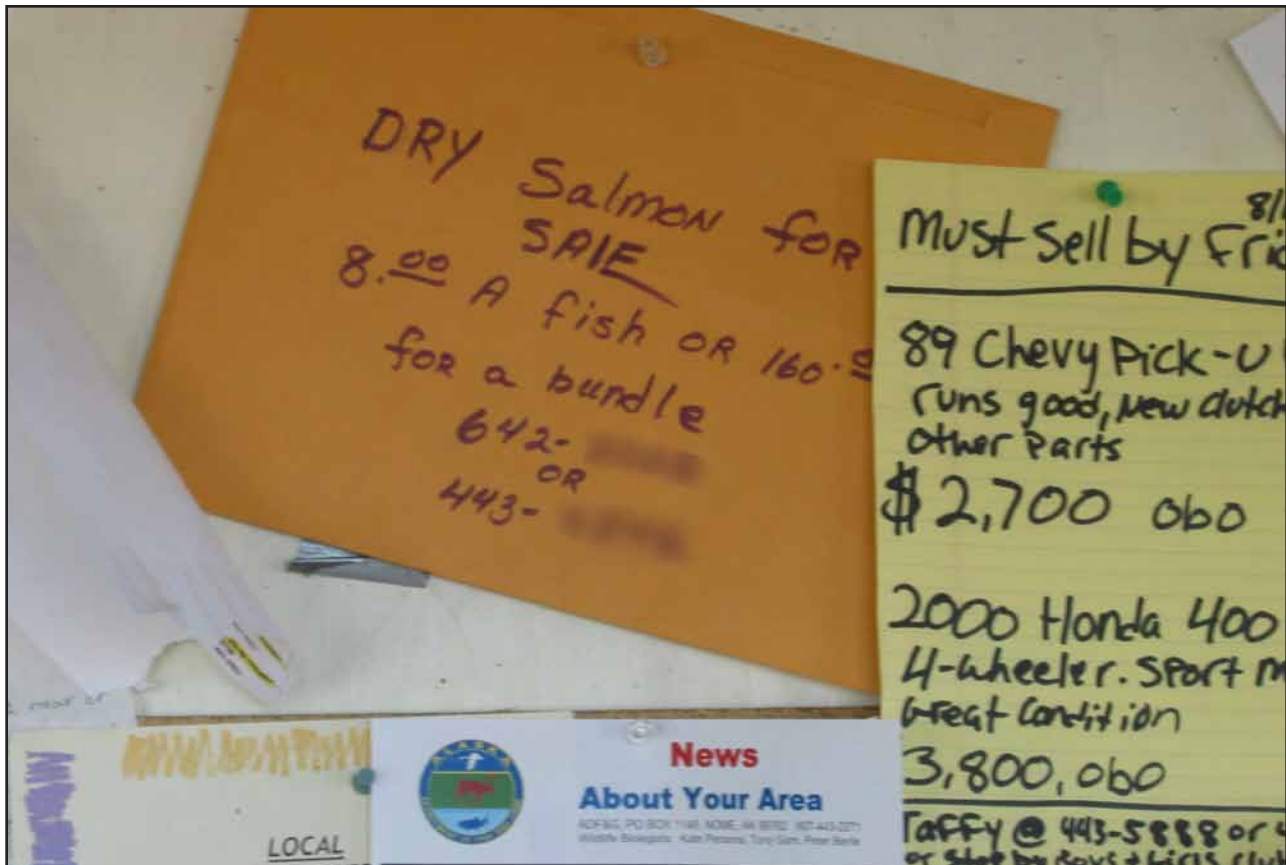 DRY Salmon for
SALE
8.00 A fish OR 160.0
for a bundle
642-
OR
443-
8/
Must Sell by Fri
89 Chevy Pick-U
runs good, New clutch
other Parts
$2,700 obo
2000 Honda 400
4-wheeler. Sport M
Great Condition
3,800, obo
Taffy @ 443-5888 or
or stop by Boys &
News
About Your Area
ADF&G, PO BOX 1148, NOME, AK 99762 907-443-2271
ALASKA
LOCAL